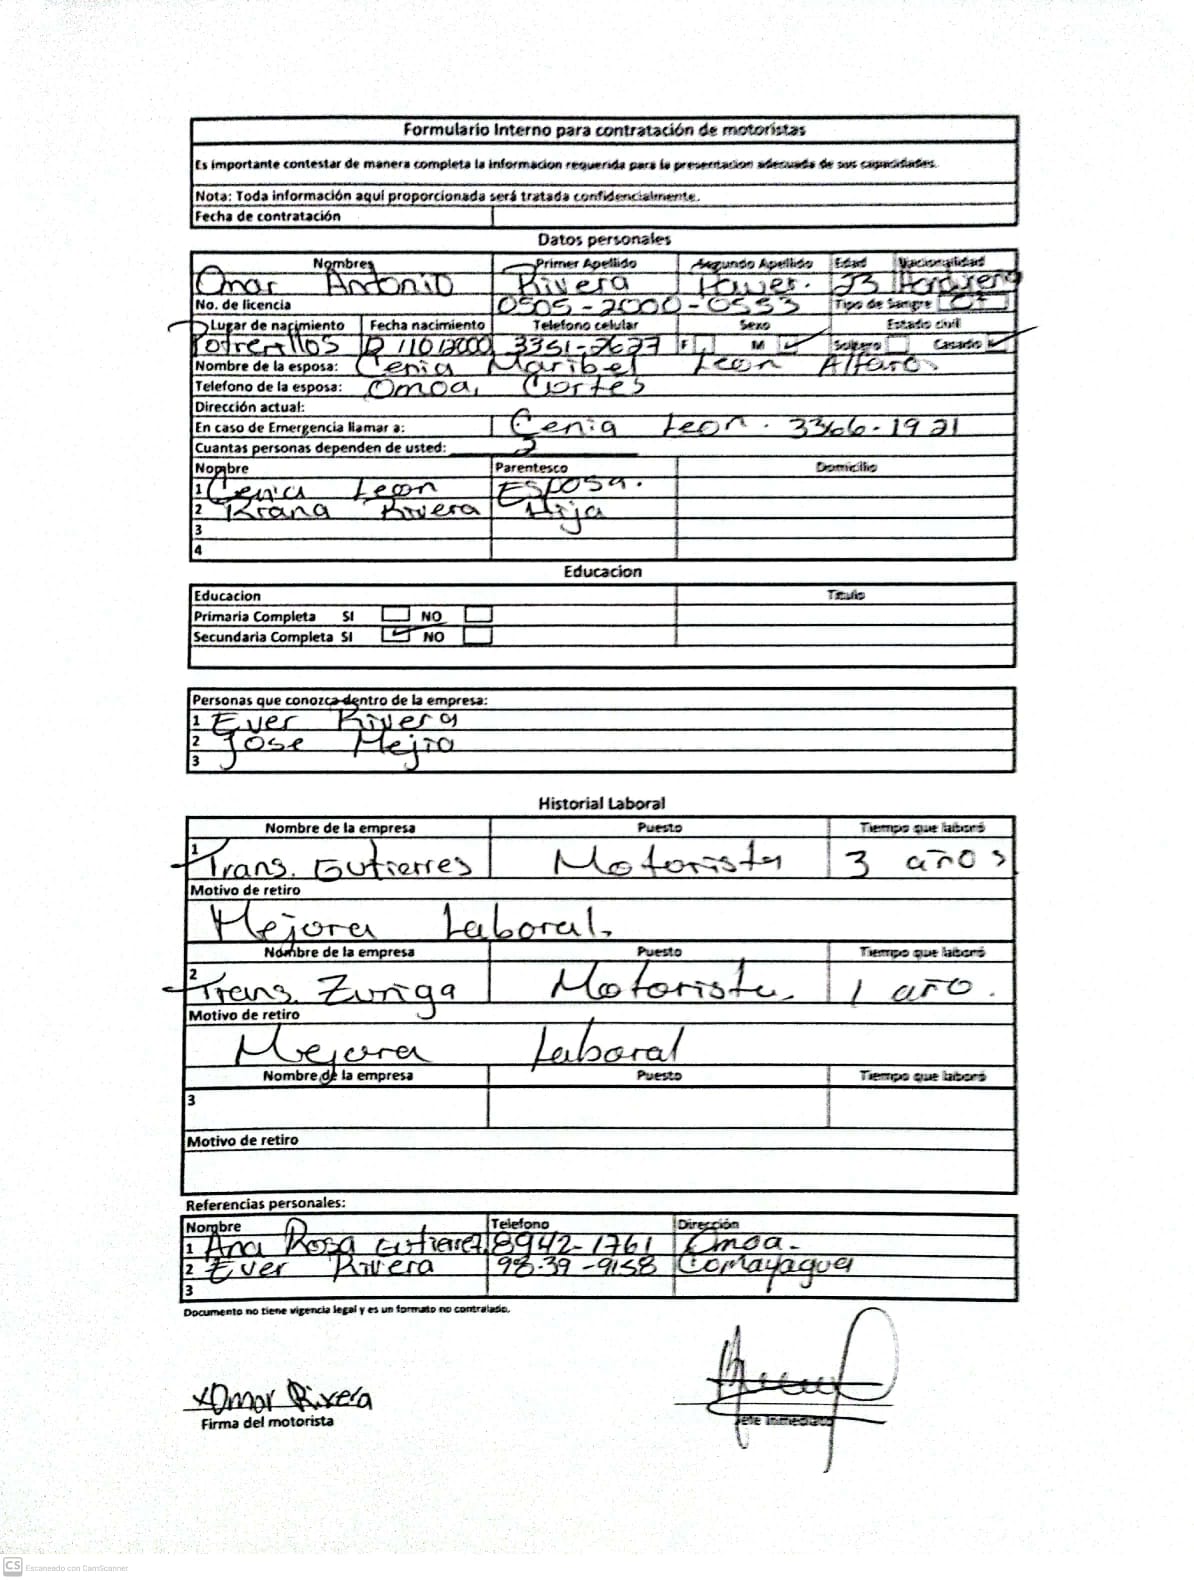 Formulario Interno para contratación de motoristas
Es importante contestar de manera completa la informacion requerida para la presentacion adecuada de sus capacidades.
Nota: Toda información aquí proporcionada será tratada confidencialmente.
Fecha de contratación
Datos personales
Nombres Primer Apellido Segundo Apellido Edad Nacionalidad
Omar Antonio Rivera 23 Hondureño
No. de licencia 0505-2000-0553 Tipo de Sangre
Lugar de nacimiento Fecha nacimiento Telefono celular Sexo Estado civil
Potrerillos 3351-2627 F M Soltero Casado
Nombre de la esposa: Cenia Maribel Leon Alfaro.
Telefono de la esposa: Omoa, Cortes
Dirección actual:
En caso de Emergencia llamar a: Cenia Leon. 3366-1921
Cuantas personas dependen de usted: 2
Nombre Parentesco Domicilio
1 Cenia Leon Esposa.
2 Rivera Hija
3
4
Educacion
Educacion Titulo
Primaria Completa SI NO
Secundaria Completa SI NO
Personas que conozca dentro de la empresa:
1 Ever Rivera
2 Jose Mejia
3
Historial Laboral
Nombre de la empresa Puesto Tiempo que laboró
1 Trans. Gutierres Motorista 3 años
Motivo de retiro
Mejora Laboral.
Nombre de la empresa Puesto Tiempo que laboró
2 Trans. Zuniga Motorista. 1 año.
Motivo de retiro
Mejora Laboral
Nombre de la empresa Puesto Tiempo que laboró
3
Motivo de retiro
Referencias personales:
Nombre Telefono Dirección
1 Ana Rosa Gutierrez 8942-1761 Omoa.
2 Ever Rivera 98-39-9158 Comayagua
3
Documento no tiene vigencia legal y es un formato no contralado.
xOmar Rivera
Firma del motorista Jefe Inmediato
CS Escaneado con CamScanner